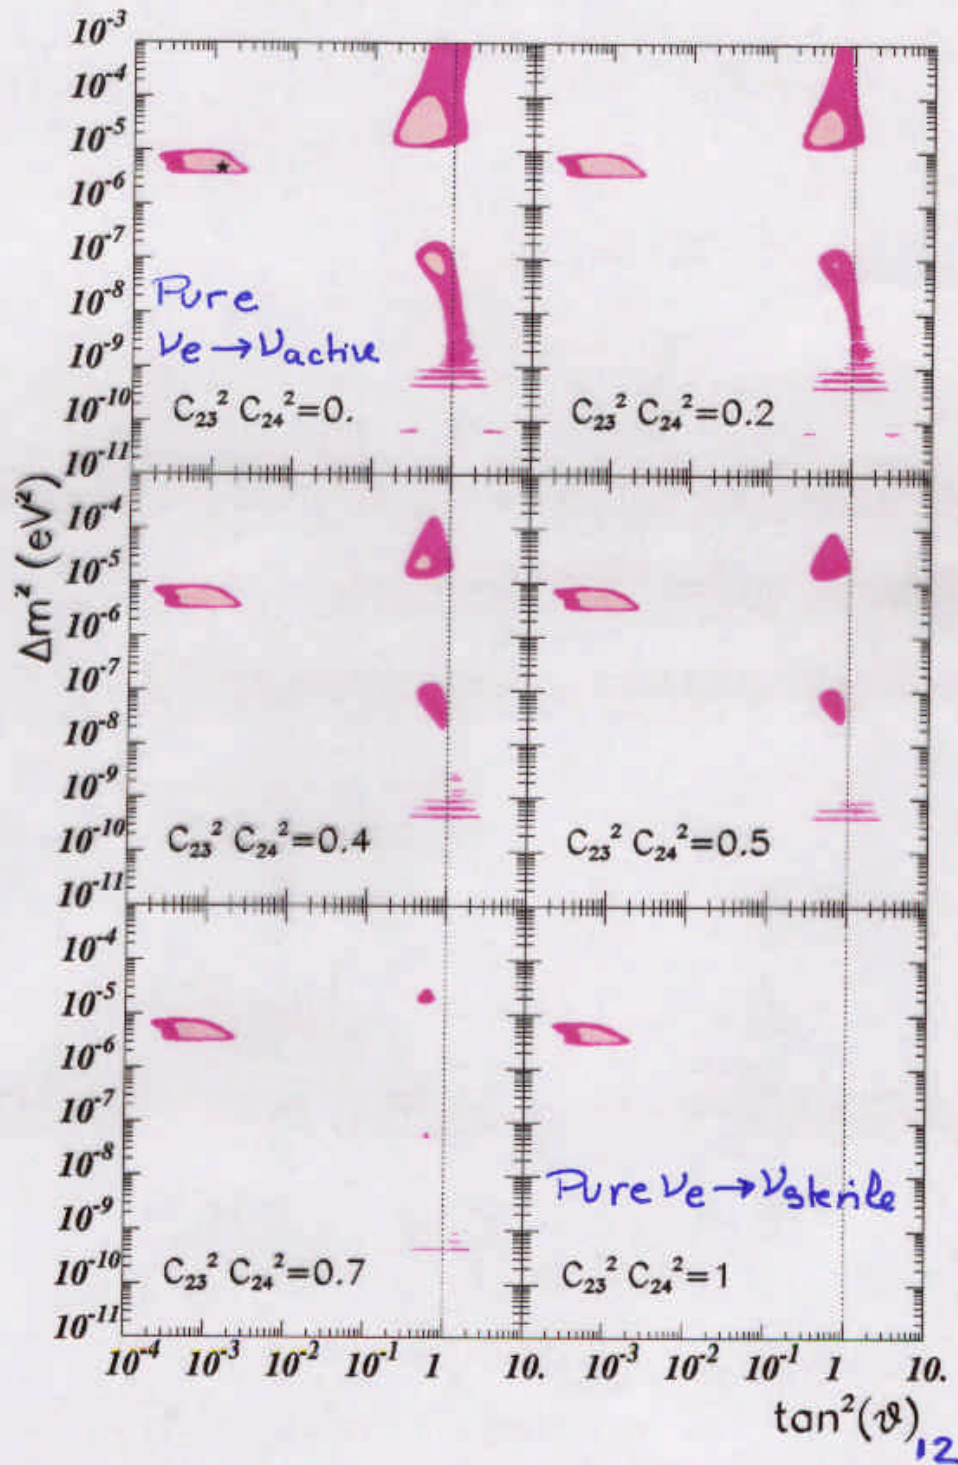 10⁻³
10⁻⁴
10⁻⁵
10⁻⁶
10⁻⁷
10⁻⁸
10⁻⁹
10⁻¹⁰
10⁻¹¹
Pure
νe → νactive
C₂₃² C₂₄²=0.
C₂₃² C₂₄²=0.2
Δm² (eV²)
10⁻⁴
10⁻⁵
10⁻⁶
10⁻⁷
10⁻⁸
10⁻⁹
10⁻¹⁰
10⁻¹¹
C₂₃² C₂₄²=0.4
C₂₃² C₂₄²=0.5
10⁻⁴
10⁻⁵
10⁻⁶
10⁻⁷
10⁻⁸
10⁻⁹
10⁻¹⁰
10⁻¹¹
C₂₃² C₂₄²=0.7
Pure νe → νsterile
C₂₃² C₂₄²=1
10⁻⁴ 10⁻³ 10⁻² 10⁻¹ 1 10. 10⁻³ 10⁻² 10⁻¹ 1 10.
tan²(ϑ)
12